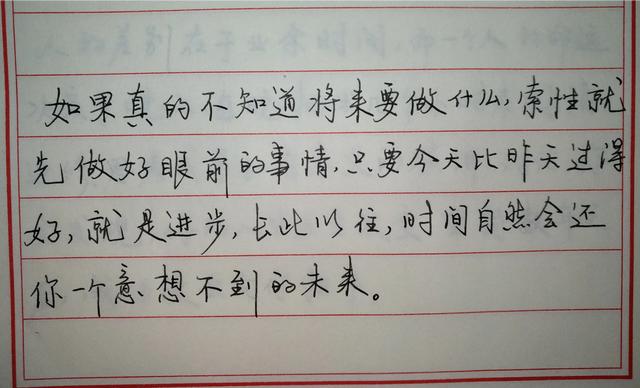 如果真的不知道将来要做什么，索性就
先做好眼前的事情，只要今天比昨天过得
好，就是进步，长此以往，时间自然会还
你一个意想不到的未来。